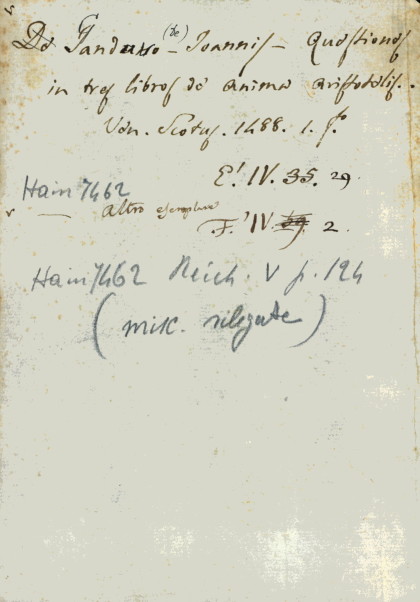 De Janduno (de) - Joannis - Quæstiones
in tres libros de anima aristotelis.
Ven. Scotus. 1488. 1. f.º
E! IV. 35. 29
Hain 7462
altro esemplare
F.' IV 2.
Hain 7462 Reich. V p. 124
(misc. rilegate)